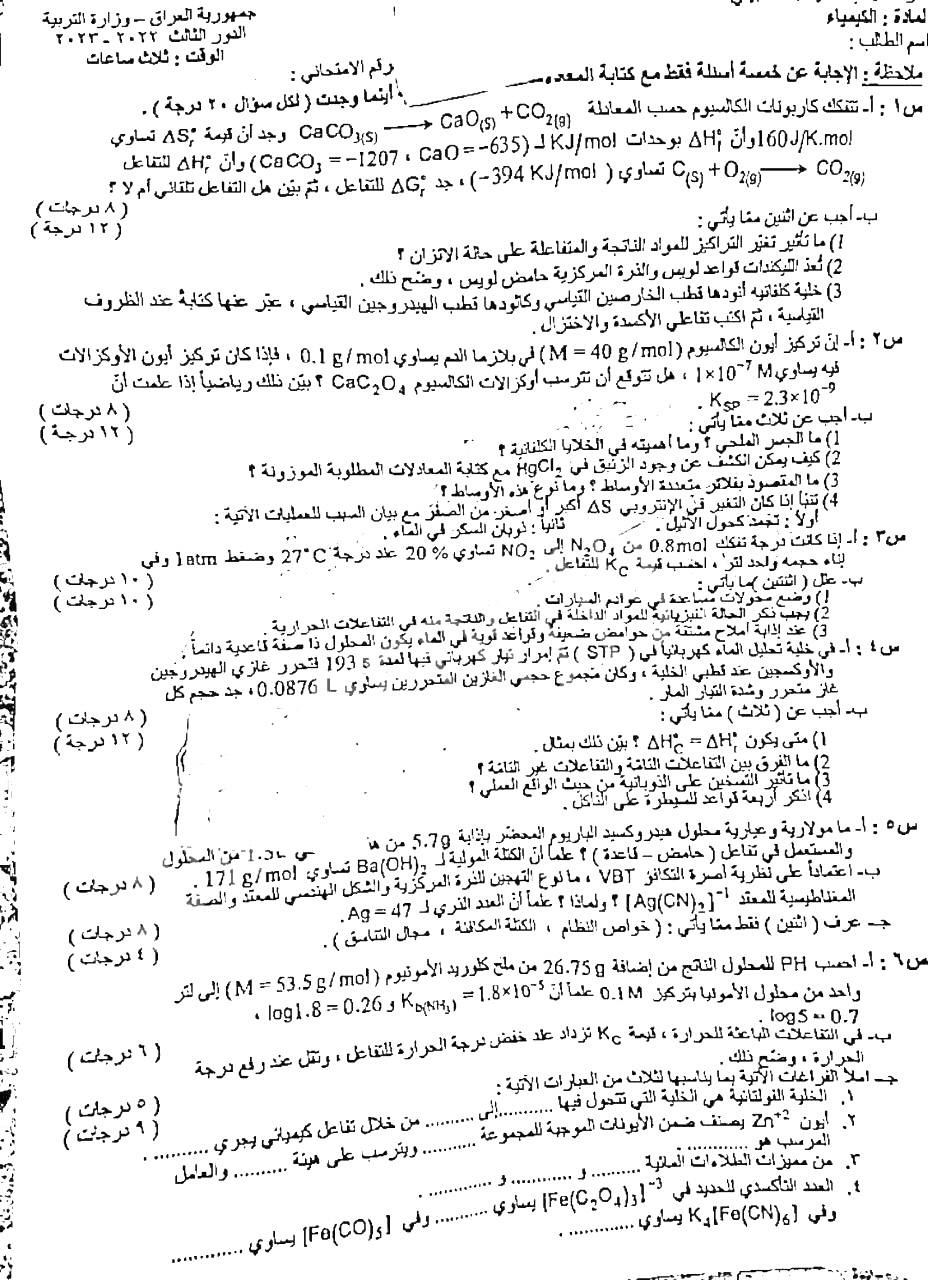 جمهورية العراق – وزارة التربية
الدور الثالث ٢٠٢٢ – ٢٠٢٣
الوقت : ثلاث ساعات
لمادة : الكيمياء
اسم الطالب :
رقم الامتحاني :
ملاحظة : الإجابة عن خمسة أسئلة فقط مع كتابة
أينما وجدت ( لكل سؤال ٢٠ درجة ) .
س١ : أ- تتفكك كاربونات الكالسيوم حسب المعادلة CaCO3(S) ⟶ CaO(S) + CO2(g) وجد أنّ قيمة ΔS°r تساوي
160J/K.mol وأنّ ΔH°f بوحدات KJ/mol لـ (CaCO3 = –1207 ، CaO = –635) وأنّ ΔH°r للتفاعل
C(S) + O2(g) ⟶ CO2(g) تساوي (–394 KJ/mol) ، جد ΔG°r للتفاعل ، ثمّ بيّن هل التفاعل تلقائي أم لا ؟
( ٨ درجات )
ب- أجب عن اثنين ممّا يأتي :
( ١٢ درجة )
1) ما تأثير تغيّر التراكيز للمواد الناتجة والمتفاعلة على حالة الاتزان ؟
2) تُعدّ الليكندات قواعد لويس والذرة المركزية حامض لويس ، وضّح ذلك .
3) خلية كلفانيه أنودها قطب الخارصين القياسي وكاثودها قطب الهيدروجين القياسي ، عبّر عنها كتابةً عند الظروف
القياسية ، ثمّ اكتب تفاعلي الأكسدة والاختزال .
س٢ : أ- إنّ تركيز أيون الكالسيوم (M = 40 g/mol) في بلازما الدم يساوي 0.1 g/mol ، فإذا كان تركيز أيون الأوكزالات
فيه يساوي 1×10⁻⁷ M ، هل تتوقع أن تترسب أوكزالات الكالسيوم CaC2O4 ؟ بيّن ذلك رياضياً إذا علمت أنّ
KSP = 2.3×10⁻⁹ .
( ٨ درجات )
ب- أجب عن ثلاث ممّا يأتي :
( ١٢ درجة )
1) ما الجسر الملحي ؟ وما أهميته في الخلايا الكلفانية ؟
2) كيف يمكن الكشف عن وجود الزئبق في HgCl2 مع كتابة المعادلات المطلوبة الموزونة ؟
3) ما المقصود بفلاتر متعددة الأوساط ؟ وما نوع هذه الأوساط ؟
4) تنبأ إذا كان التغير في الإنتروبي ΔS أكبر أو أصغر من الصفر مع بيان السبب للعمليات الآتية :
أولاً : تجمد كحول الأثيل . ثانياً : ذوبان السكر في الماء .
س٣ : أ- إذا كانت درجة تفكك 0.8mol من N2O4 إلى NO2 تساوي 20 % عند درجة 27°C وضغط 1atm وفي
إناء حجمه واحد لتر ، احسب قيمة KC للتفاعل .
( ١٠ درجات )
ب- علل ( اثنتين )ما يأتي :
( ١٠ درجات )
1) وضع محولات مساعدة في عوادم السيارات
2) يجب ذكر الحالة الفيزيائية للمواد الداخلة في التفاعل والناتجة منه في التفاعلات الحرارية
3) عند إذابة أملاح مشتقة من حوامض ضعيفة وقواعد قوية في الماء يكون المحلول ذا صفة قاعدية دائماً .
س٤ : أ- في خلية تحليل الماء كهربائياً في ( STP ) تمّ إمرار تيار كهربائي فيها لمدة 193 s فتحرر غازي الهيدروجين
والأوكسجين عند قطبي الخلية ، وكان مجموع حجمي الغازين المتحررين يساوي 0.0876 L ، جد حجم كل
غاز متحرر وشدة التيار المار .
( ٨ درجات )
ب- أجب عن ( ثلاث ) ممّا يأتي :
( ١٢ درجة )
1) متى يكون ΔH°C = ΔH°r ؟ بيّن ذلك بمثال .
2) ما الفرق بين التفاعلات التامّة والتفاعلات غير التامّة ؟
3) ما تأثير التسخين على الذوبانية من حيث الواقع العملي ؟
4) اذكر أربعة قواعد للسيطرة على التآكل .
س٥ : أ- ما مولارية وعيارية محلول هيدروكسيد الباريوم المحضّر بإذابة 5.7g من من المحلول
والمستعمل في تفاعل ( حامض – قاعدة ) ؟ علماً أنّ الكتلة المولية لـ Ba(OH)2 تساوي 171 g/mol .
( ٨ درجات )
ب- اعتماداً على نظرية آصرة التكافؤ VBT ، ما نوع التهجين للذرة المركزية والشكل الهندسي للمعقد والصفة
المغناطيسية للمعقد [Ag(CN)2]⁻¹ ؟ ولماذا ؟ علماً أنّ العدد الذري لـ Ag = 47 .
( ٨ درجات )
جـ- عرف ( اثنين ) فقط ممّا يأتي : ( خواص النظام ، الكتلة المكافئة ، مجال التناسق ) .
( ٤ درجات )
س٦ : أ- احسب PH للمحلول الناتج من إضافة 26.75g من ملح كلوريد الأمونيوم (M = 53.5 g/mol) إلى لتر
واحد من محلول الأمونيا بتركيز 0.1M علماً أنّ Kb(NH3) = 1.8×10⁻⁵ و log1.8 = 0.26 ،
log5 = 0.7 .
( ٦ درجات )
ب- في التفاعلات الباعثة للحرارة ، قيمة KC تزداد عند خفض درجة الحرارة للتفاعل ، وتقل عند رفع درجة
الحرارة ، وضّح ذلك .
( ٥ درجات )
جـ- املأ الفراغات الآتية بما يناسبها لثلاث من العبارات الآتية :
( ٩ درجات )
١. الخلية الفولتائية هي الخلية التي تتحول فيها .......... إلى .......... من خلال تفاعل كيميائي يجري .......... .
٢. أيون Zn⁺² يصنف ضمن الأيونات الموجبة للمجموعة .......... ويترسب على هيئة .......... والعامل
المرسب هو .......... .
٣. من مميزات الطلاءات المائية .......... و .......... و .......... .
٤. العدد التأكسدي للحديد في [Fe(C2O4)3]⁻³ يساوي .......... وفي [Fe(CO)5] يساوي ..........
وفي K4[Fe(CN)6] يساوي .......... .